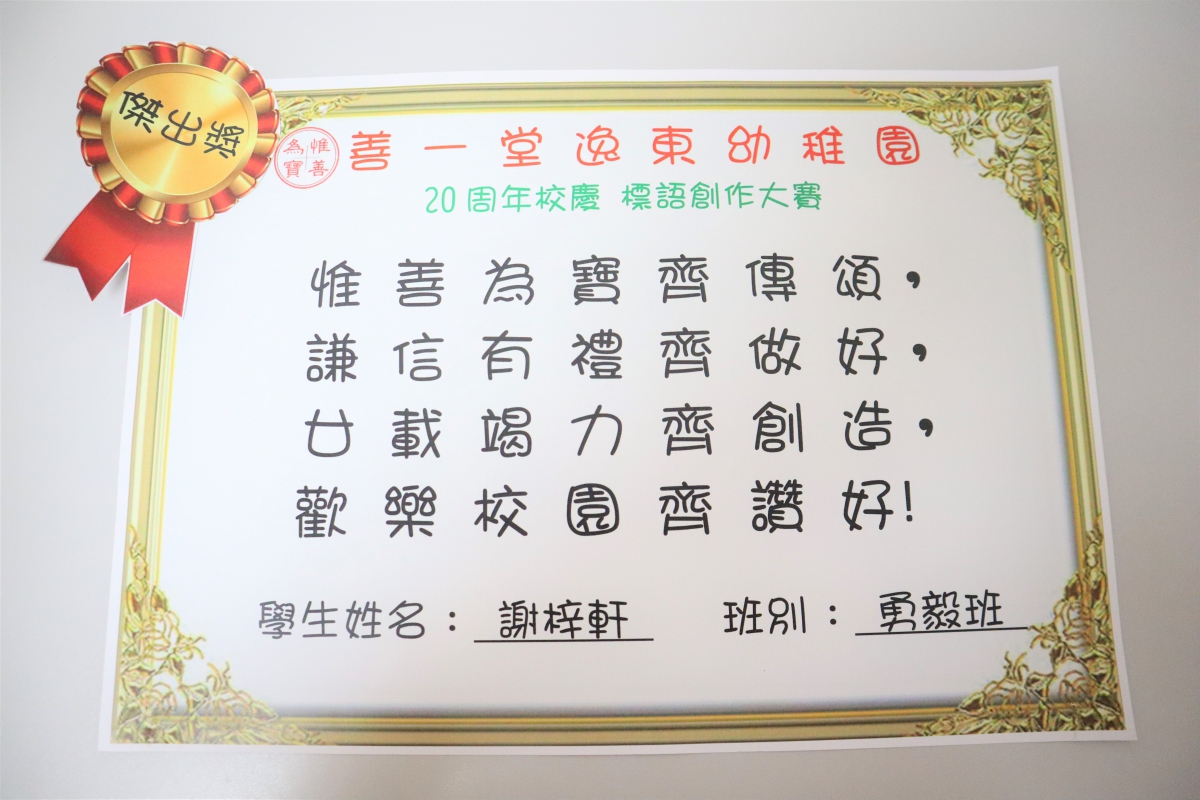 傑出獎
惟善為寶
善一堂逸東幼稚園
20周年校慶 標語創作大賽
惟善為寶齊傳頌，
謙信有禮齊做好，
廿載竭力齊創造，
歡樂校園齊讚好!
學生姓名：謝梓軒 班別：勇毅班